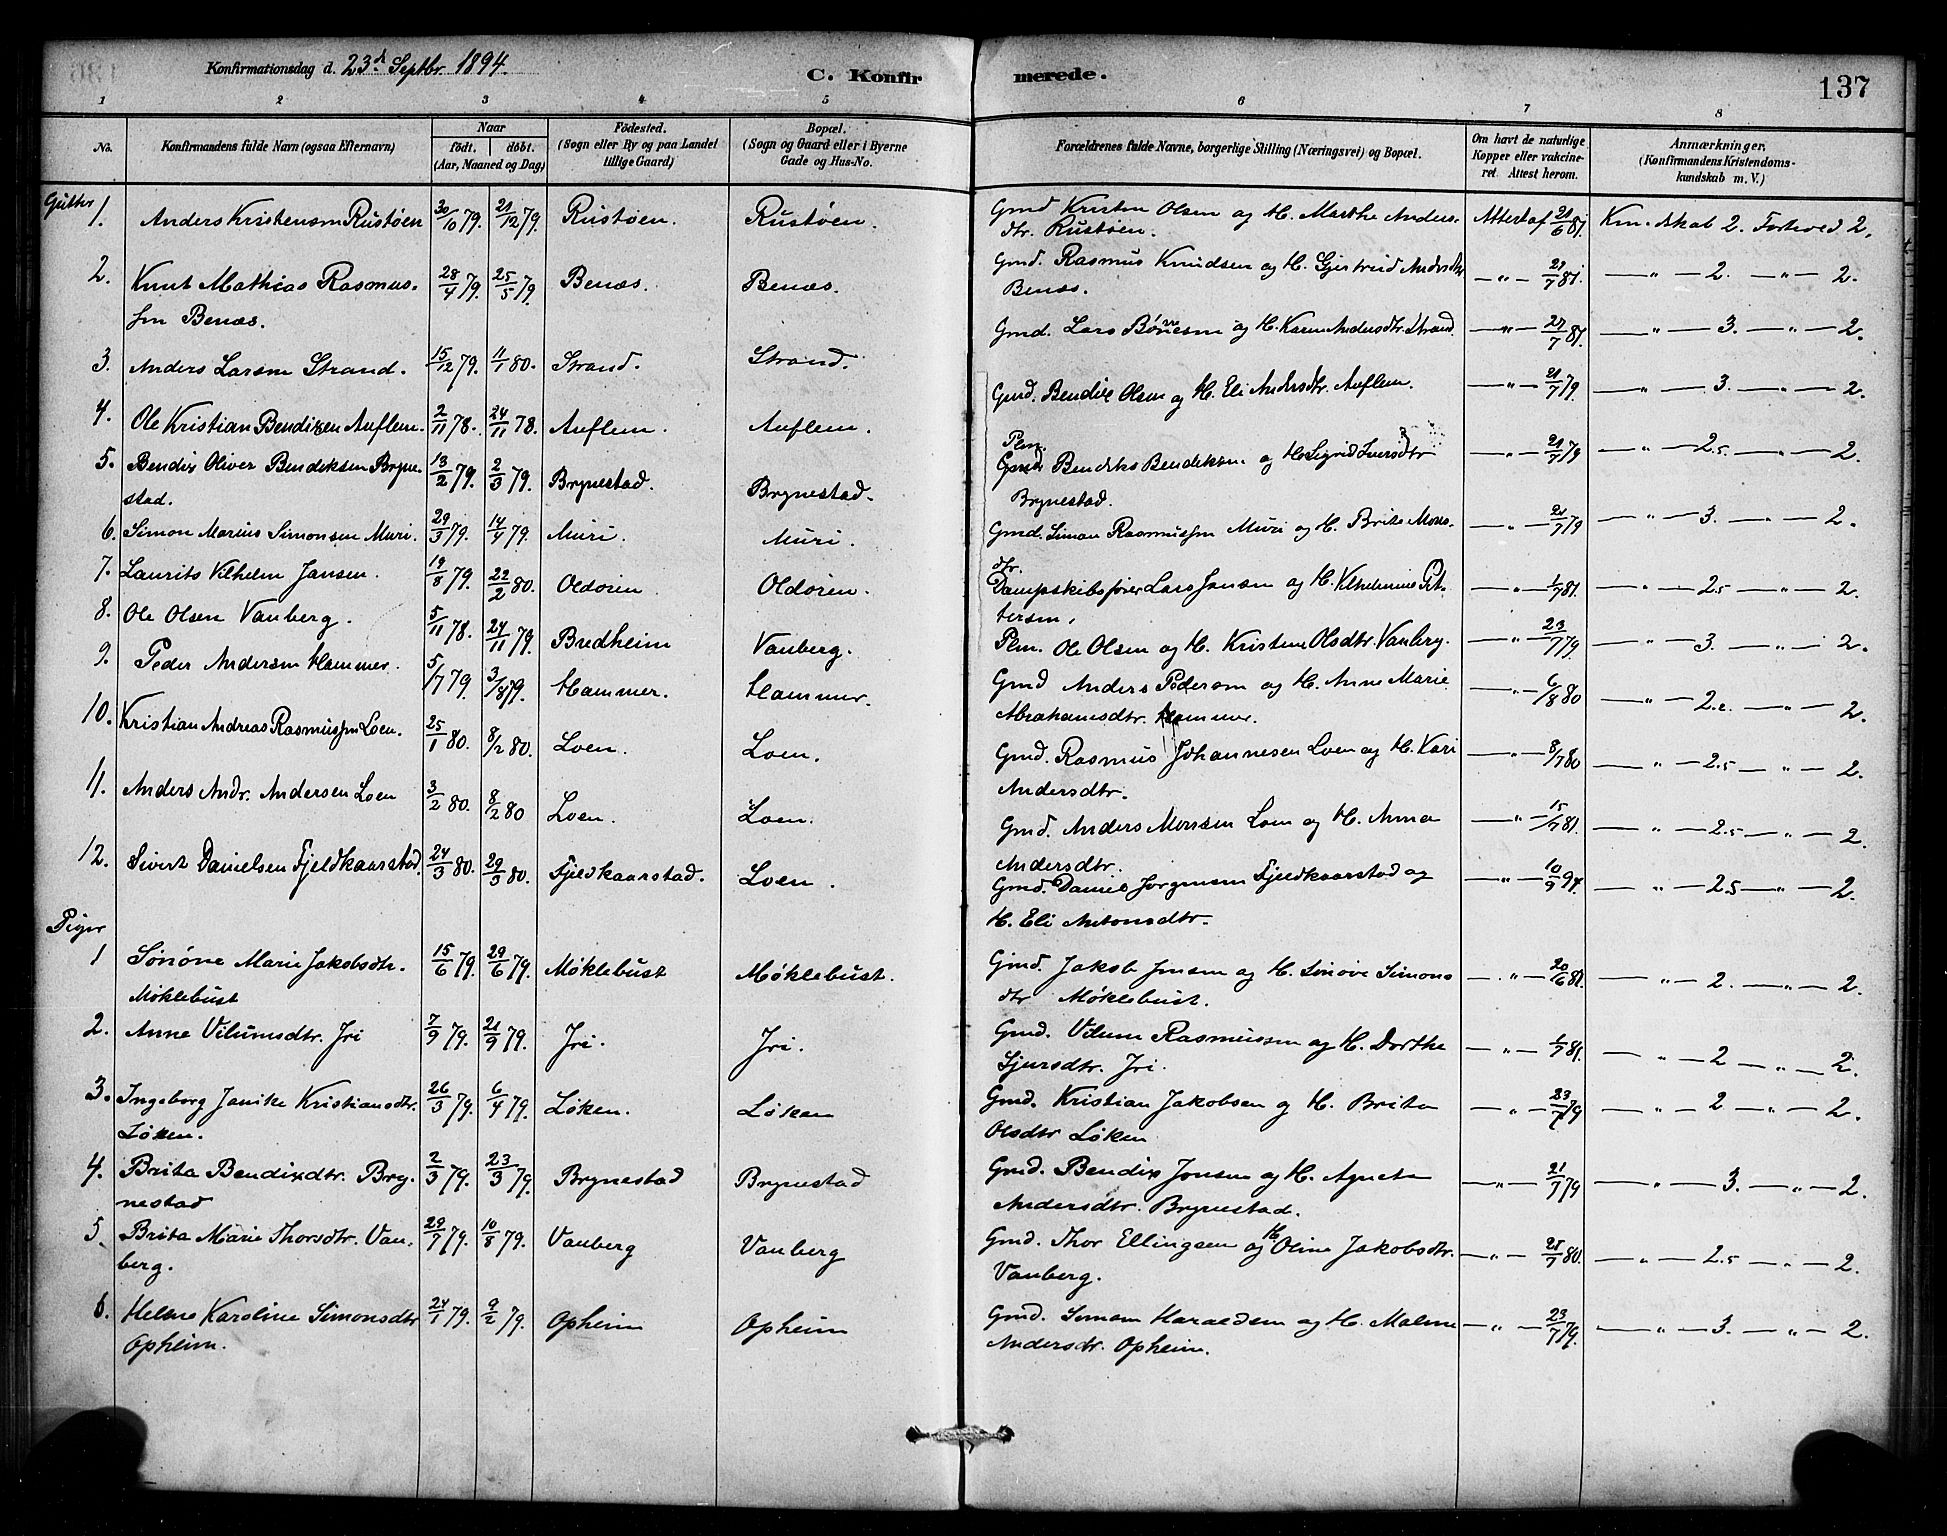 Konfirmationsdag d. 23d Septbr. 1894.
C. Konfirmerede.
137
1 2 3 4 5 6 7 8
No.
Konfirmandens fulde Navn (ogsaa Efternavn)
Naar
født. døbt.
(Aar, Maaned og Dag)
Födested.
(Sogn eller By og paa Landet
tillige Gaard)
Bopæl.
(Sogn og Gaard eller i Byerne
Gade og Hus-No.
Forældrenes fulde Navne, borgerlige Stilling (Næringsvei) og Bopæl.
Om havt de naturlige
Kopper eller vakcine-
ret. Attest herom.
Anmærkninger.
(Konfirmandens Kristendoms-
kundskab m. V.)
Gutter
1. Anders Kristensen Rustøen 30/10 79. 21/12 79. Rustøen. Rustøen. Gmd Kristen Olsen og H. Marthe Anders- Attest af 21/6 81. Kn.dskab 2. Forhold 2.
dtr. Rustøen.
2. Knut Mathias Rasmus- 28/4 79. 25/5 79 Benæs. Benæs. Gmd. Rasmus Knudsen og H. Gjertrud Andersdtr — " — 21/7 81. — " — 2. — " — 2.
sen Benæs. Benæs.
3. Anders Larsen Strand. 15/12 79. 11/1 80. Strand. Strand. Gmd. Lars Bønesen og H. Karen Andersdtr. Strand. — " — 27/7 81. — " — 3. — " — 2.
4. Ole Kristian Bendixen Auflem. 2/11 78. 24/11 78. Auflem. Auflem. Gmd. Bendix Olsen og H. Eli Andersdtr. Auflem. — " — 21/7 79. — " — 3. — " — 2.
5. Bendix Oliver Bendiksen Bryne- 13/2 79. 2/3 79. Brynestad. Brynestad. Plm. Gmd. Bendiks Bendiksen og H. Sigrid Iversdtr — " — 21/7 79 — " — 2.5. — " — 2.
stad. Brynestad.
6. Simon Marius Simonsen Muri. 29/3 79. 14/4 79. Muri. Muri. Gmd. Simon Rasmussen Muri og H. Brite Mons- — " — 21/7 79 — " — 3. — " — 2.
dtr.
7. Laurits Vilhelm Jansen. 19/8 79. 22/2 80. Oldøren Oldøren. Dampskibsfører Lars Jansen og H. Vilhelmine Pet- — " — 1/7 81. — " — 2.5 — " — 2.
tersen.
8. Ole Olsen Vanberg. 5/11 78. 24/11 79. Bredheim Vanberg. Plm. Ole Olsen og H. Kristine Olsdtr. Vanberg. — " — 23/7 79. — " — 3. — " — 2.
9. Peder Andersen Hammer. 5/7 79. 3/8 79. Hammer. Hammer. Gmd Anders Pedersen og H. Anne Marie — " — 6/8 80 — " — 2.2. — " — 2.
Abrahamsdtr. Hammer.
10. Kristian Andreas Rasmussen Loen. 25/1 80. 8/2 80. Loen. Loen. Gmd. Rasmus Johannesen Loen og H. Kari — " — 8/7 80 — " — 2.5 — " — 2.
Andersdtr.
11. Anders Andr. Andersen Loen 3/2 80. 8/2 80 Loen. Loen. Gmd. Anders Monsen Loen og H. Anna — " — 15/7 81. — " — 2.5 — " — 2.
Andersdtr.
12. Sivert Danielsen Fjeldkaarstad. 24/3 80. 29/3 80. Fjeldkaarstad. Loen. Gmd. Daniel Jørgensen Fjeldkaarstad og — " — 10/9 94. — " — 2.5 — " — 2.
H. Eli Antonsdtr.
Piger
1 Sønøve Marie Jakobsdtr. 15/6 79. 29/6 79. Møklebust Møklebust. Gmd. Jakob Jensen og H. Sønøve Simons — " — 20/6 81. — " — 2. — " — 2.
Møklebust dtr Møklebust.
2. Anne Vilumsdtr. Jri 7/9 79. 21/9 79. Jri. Jri. Gmd. Vilum Rasmussen og H. Dorthe — " — 1/7 81. — " — 2 — " — 2.
Sjursdtr. Jri.
3. Ingeborg Janike Kristiansdtr. 26/3 79. 6/4 79. Løken. Løken Gmd. Kristian Jakobsen og H. Brita — " — 23/7 79 — " — 2 — " — 2.
Løken. Olsdtr Løken
4. Brita Bendixdtr. Bry- 2/3 79. 23/3 79. Brynestad Brynestad Gmd. Bendix Jonsen og H. Agnete — " — 21/7 79 — " — 3. — " — 2.
nestad Andersdtr. Brynestad.
5. Brita Marie Thorsdtr. Van- 29/7 79. 10/8 79. Vanberg Vanberg Gmd. Thor Ellingsen og H. Oline Jakobsdtr. — " — 25/7 80. — " — 2.5 — " — 2.
berg. Vanberg.
6. Helene Karoline Simonsdtr 24/1 79. 9/2 79. Opheim Opheim Gmd. Simon Haraldsen og H. Malene — " — 23/7 79. — " — 3. — " — 2.
Opheim. Andersdtr. Opheim.